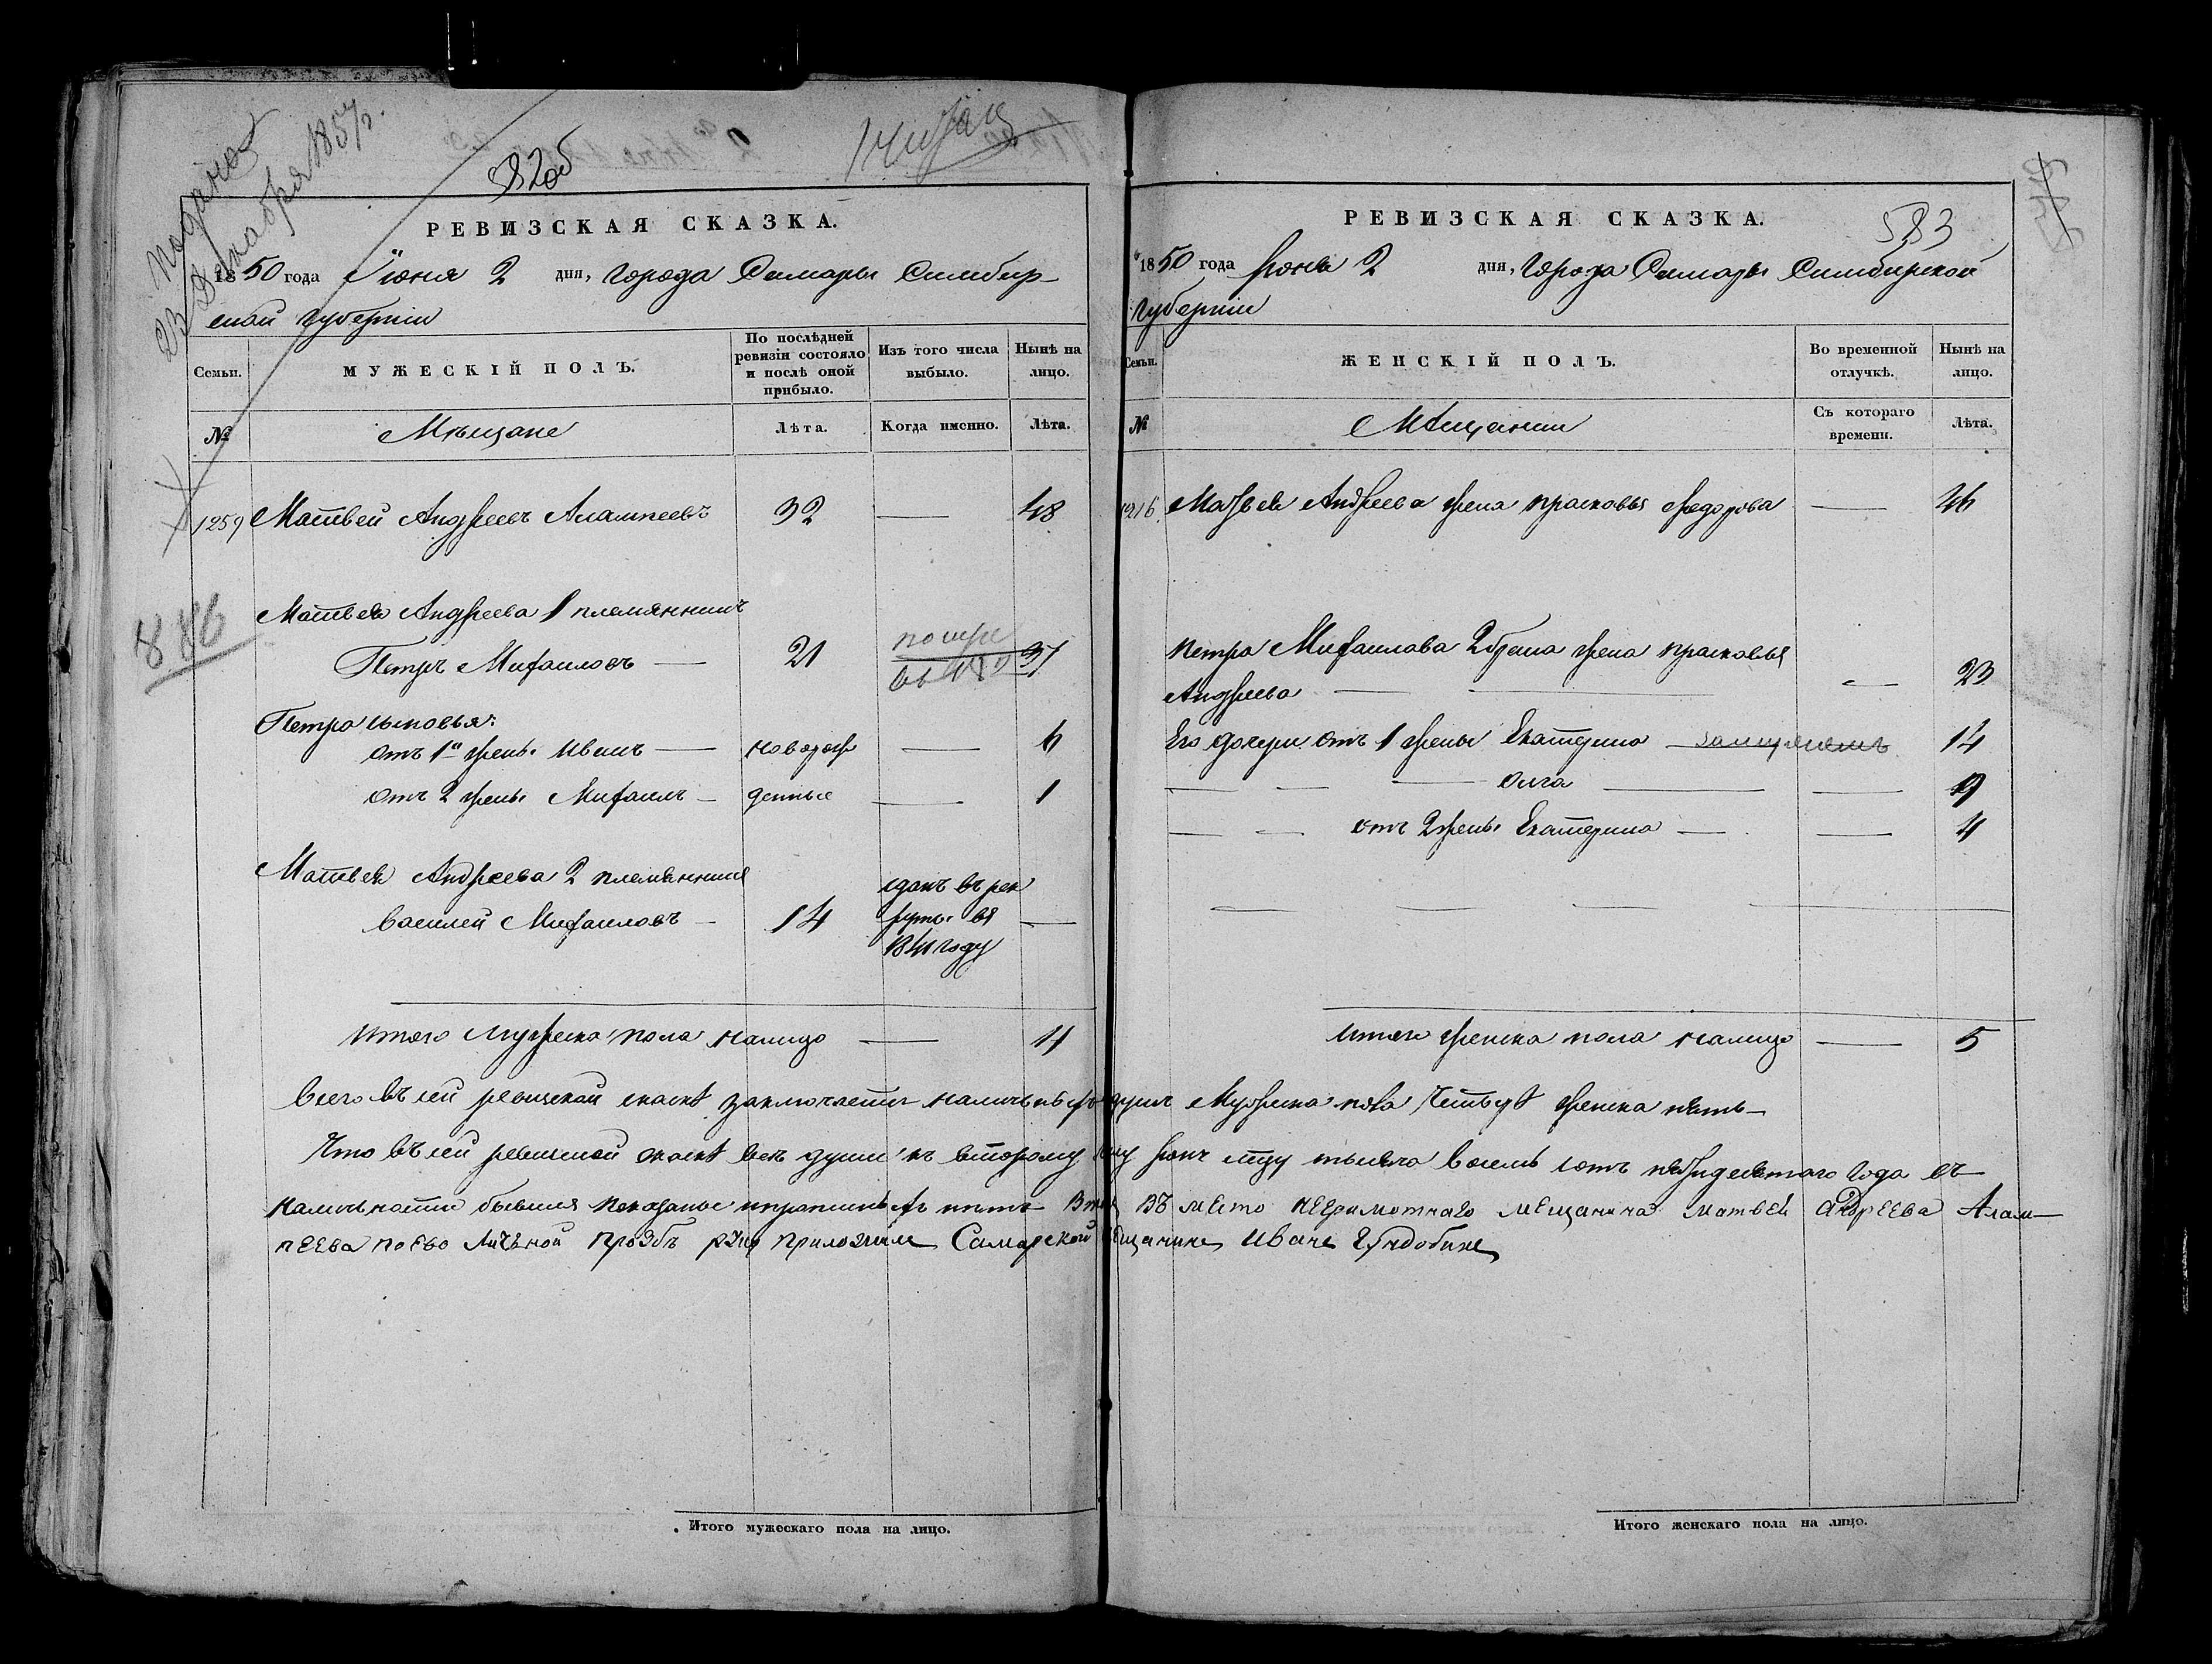 подана
23 Декабря 1857 г.
582 об
РЕВИЗСКАЯ СКАЗКА.
1850 года Іюня 2 дня, города Самары Симбир-
ской губерніи
Семьи. МУЖЕСКІЙ ПОЛЪ. По послѣдней ревизіи состояло и послѣ оной прибыло. Изъ того числа выбыло. Нынѣ на лицо.
№ Мѣщане Лѣта. Когда именно. Лѣта.
1259 Матвей Андреевъ Алампеевъ 32 — 48
Матвея Андреева 1 племянникъ
Петръ Михаиловъ — 21 37
886
Петра сыновья:
отъ 1й жены Иванъ — новорож — 6
отъ 2 жены Михаилъ — денные — 1
Матвея Андреева 2 племянникъ
Василей Михаиловъ — 14 — 
сданъ въ рек
руты въ
1841 году
Итого мужеска пола налицо — 4
Итого мужескаго пола на лицо.
583
РЕВИЗСКАЯ СКАЗКА.
1850 года Іюня 2 дня, города Самары Симбирской
губерніи
Семьи. ЖЕНСКІЙ ПОЛЪ. Во временной отлучкѣ. Нынѣ на лицо.
№ Мѣщанки Съ котораго времени. Лѣта.
1216 Матвея Андреева жена прасковья Федорова — 46
Петра Михаилова 2 брака жена прасковья
Андреева — — — 23
Его дочери отъ 1 жены Екатерина 14
— — — Олга — — 9
— — отъ 2 жены Екатерина — — 4
Итого женска пола налицо — 5
Всего въ сей ревиской скаскѣ заключается наличныхъ душъ Мужеска пола Четыре женска пять —
Что въ сей ревиской скаскѣ все души къ второму Іюня тысяча восемь сотъ пятидесятаго года въ
наличности бывшия показаны и прописныхъ нетъ въ место неграмотнаго мещанина матвей андреева Алам-
пеева по ево личьной прозбѣ руку приложилъ Самарской мещанинъ Иванъ
Итого женскаго пола на лицо.